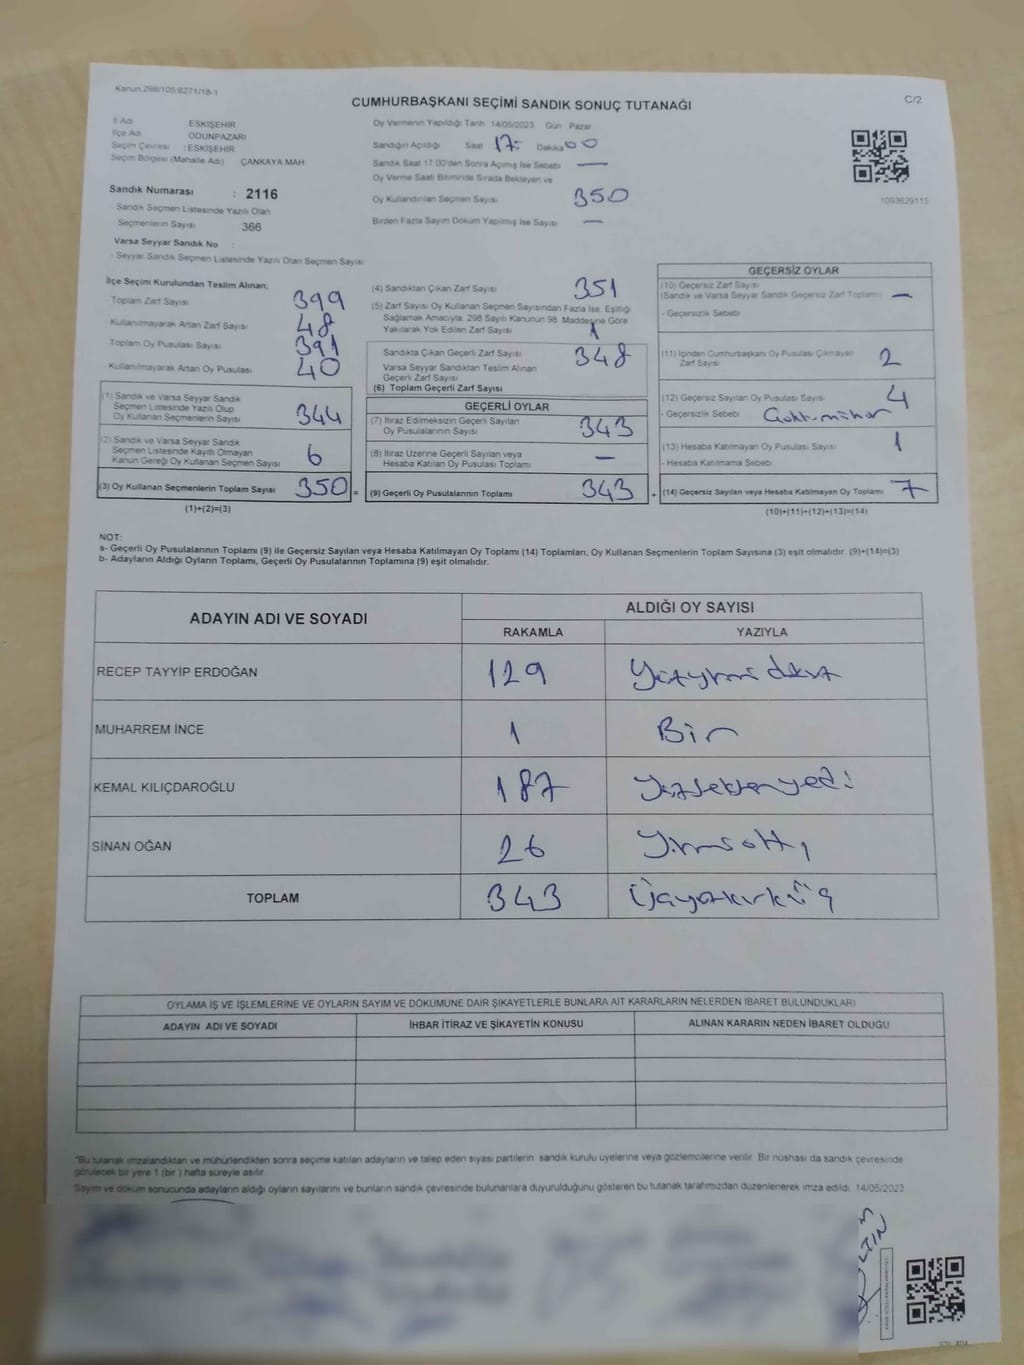 Kanun.298/105.6271/18-1
CUMHURBAŞKANI SEÇİMİ SANDIK SONUÇ TUTANAĞI
C/2
İl Adı ESKİŞEHİR
İlçe Adı ODUNPAZARI
Seçim Çevresi : ESKİŞEHİR
Seçim Bölgesi (Mahalle Adı) ÇANKAYA MAH
Sandık Numarası : 2116
- Sandık Seçmen Listesinde Yazılı Olan
Seçmenlerin Sayısı 366
Varsa Seyyar Sandık No :
- Seyyar Sandık Seçmen Listesinde Yazılı Olan Seçmen Sayısı
Oy Vermenin Yapıldığı Tarih 14/05/2023 Gün Pazar
Sandığın Açıldığı Saat 17: Dakika 00
Sandık Saat 17:00'den Sonra Açılmış İse Sebebi —
Oy Verme Saati Bitiminde Sırada Bekleyen ve
Oy Kullandırılan Seçmen Sayısı 350
Birden Fazla Sayım Döküm Yapılmış İse Sayısı —
1093629115
İlçe Seçim Kurulundan Teslim Alınan;
- Toplam Zarf Sayısı 399
- Kullanılmayarak Artan Zarf Sayısı 48
Toplam Oy Pusulası Sayısı 391
- Kullanılmayarak Artan Oy Pusulası 40
(1) Sandık ve Varsa Seyyar Sandık
Seçmen Listesinde Yazılı Olup
Oy Kullanan Seçmenlerin Sayısı 344
(2) Sandık ve Varsa Seyyar Sandık
Seçmen Listesinde Kayıtlı Olmayan
Kanun Gereği Oy Kullanan Seçmen Sayısı 6
(3) Oy Kullanan Seçmenlerin Toplam Sayısı 350 =
(1)+(2)=(3)
(4) Sandıktan Çıkan Zarf Sayısı 351
(5) Zarf Sayısı Oy Kullanan Seçmen Sayısından Fazla İse, Eşitliği
Sağlamak Amacıyla; 298 Sayılı Kanunun 98. Maddesine Göre
Yakılarak Yok Edilen Zarf Sayısı 1
Sandıkta Çıkan Geçerli Zarf Sayısı 348
Varsa Seyyar Sandıktan Teslim Alınan
Geçerli Zarf Sayısı
(6) Toplam Geçerli Zarf Sayısı
GEÇERLİ OYLAR
(7) İtiraz Edilmeksizin Geçerli Sayılan
Oy Pusulalarının Sayısı 343
(8) İtiraz Üzerine Geçerli Sayılan veya
Hesaba Katılan Oy Pusulası Toplamı —
(9) Geçerli Oy Pusulalarının Toplamı 343 +
GEÇERSİZ OYLAR
(10) Geçersiz Zarf Sayısı
(Sandık ve Varsa Seyyar Sandık Geçersiz Zarf Toplamı) —
- Geçersizlik Sebebi
(11) İçinden Cumhurbaşkanı Oy Pusulası Çıkmayan
Zarf Sayısı 2
(12) Geçersiz Sayılan Oy Pusulası Sayısı 4
- Geçersizlik Sebebi
(13) Hesaba Katılmayan Oy Pusulası Sayısı 1
- Hesaba Katılmama Sebebi
(14) Geçersiz Sayılan veya Hesaba Katılmayan Oy Toplamı 7
(10)+(11)+(12)+(13)=(14)
NOT:
a- Geçerli Oy Pusulalarının Toplamı (9) ile Geçersiz Sayılan veya Hesaba Katılmayan Oy Toplamı (14) Toplamları, Oy Kullanan Seçmenlerin Toplam Sayısına (3) eşit olmalıdır. (9)+(14)=(3)
b- Adayların Aldığı Oyların Toplamı, Geçerli Oy Pusulalarının Toplamına (9) eşit olmalıdır.
ADAYIN ADI VE SOYADI
ALDIĞI OY SAYISI
RAKAMLA YAZIYLA
RECEP TAYYİP ERDOĞAN 129
MUHARREM İNCE 1 Bir
KEMAL KILIÇDAROĞLU 187 Yüzseksenyedi
SİNAN OĞAN 26 Yirmialtı
TOPLAM 343 Üçyüzkırküç
OYLAMA İŞ VE İŞLEMLERİNE VE OYLARIN SAYIM VE DÖKÜMÜNE DAİR ŞİKAYETLERLE BUNLARA AİT KARARLARIN NELERDEN İBARET BULUNDUKLARI
ADAYIN ADI VE SOYADI İHBAR İTİRAZ VE ŞİKAYETİN KONUSU ALINAN KARARIN NEDEN İBARET OLDUĞU
*Bu tutanak imzalandıktan ve mühürlendikten sonra seçime katılan adayların ve talep eden siyasi partilerin, sandık kurulu üyelerine veya gözlemcilerine verilir. Bir nüshası da sandık çevresinde
görülecek bir yere 1 (bir ) hafta süreyle asılır.
Sayım ve döküm sonucunda adayların aldığı oyların sayılarını ve bunların sandık çevresinde bulunanlara duyurulduğunu gösteren bu tutanak tarafımızdan düzenlenerek imza edildi. 14/05/2023